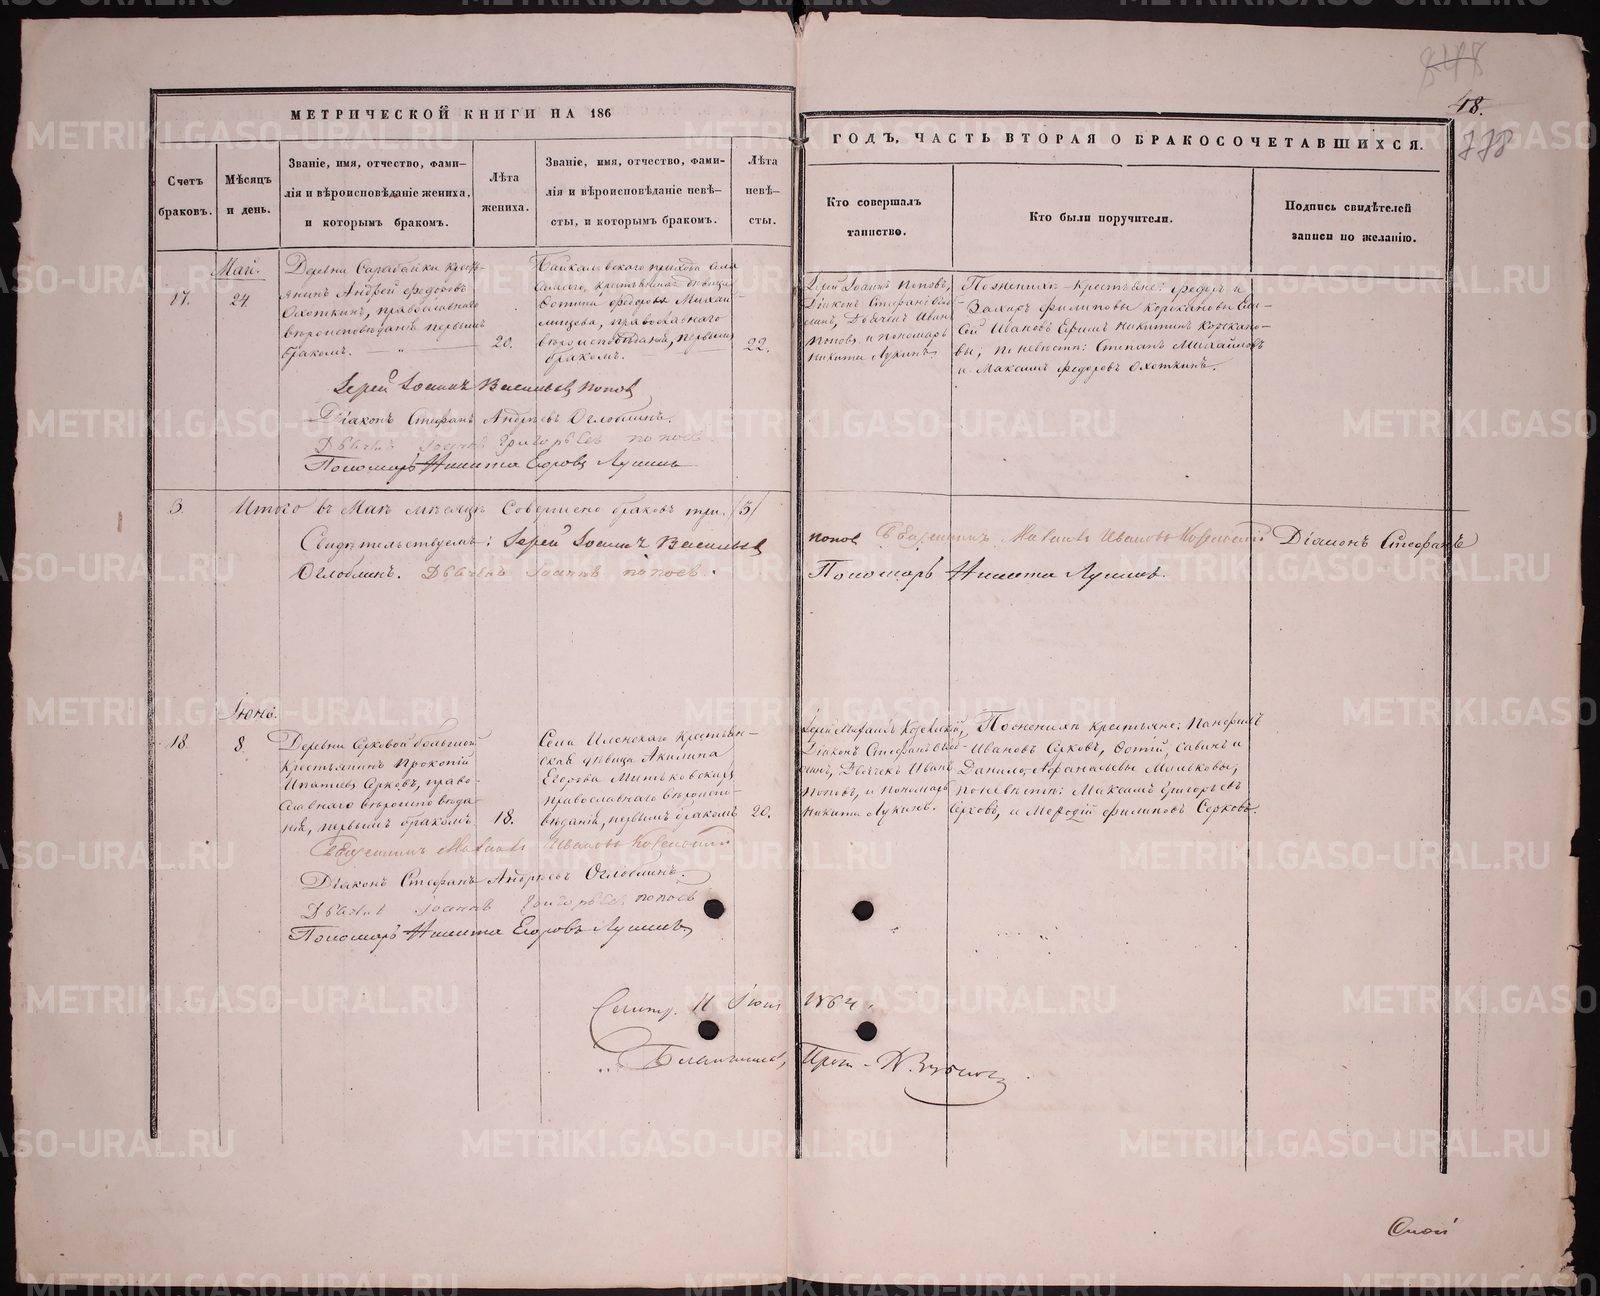 МЕТРИЧЕСКОЙ КНИГИ НА 186
Счетъ браковъ.
Мѣсяцъ и день.
Званіе, имя, отчество, фами-
лія и вѣроисповѣданіе жениха,
и которымъ бракомъ.
Лѣта
жениха.
Званіе, имя, отчество, фами-
лія и вѣроисповѣданіе невѣ-
сты, и которымъ бракомъ.
Лѣта
невѣ-
сты.
ГОДЪ, ЧАСТЬ ВТОРАЯ О БРАКОСОЧЕТАВШИХСЯ.
Кто совершалъ
таинство.
Кто были поручители.
Подпись свидѣтелей
записи по желанію.
48.
778
Май.
17.
24.
Деревни Сарабайки кресть-
янинъ Андрей Федоровъ
Охоткинъ, православнаго
вѣроисповѣданія первымъ
бракомъ.
20.
прихода села
крестьянская дѣвица
Фотина Федорова
православнаго
вѣроисповѣданія, первымъ
бракомъ.
22.
Іерей Іоаннъ Поповъ,
Діаконъ Стефанъ Огло-
блинъ, Дьячекъ Иванъ
Поповъ и пономарь
Никита Лукинъ
По женихѣ крестьяне: Федоръ и
Захаръ Филиповы
Ивановъ Ефимъ Никитинъ
по невѣстѣ: Степанъ Михайловъ
и Максимъ Федоровъ Охоткинъ.
Іерей Іоаннъ Васильевъ Поповъ
Діаконъ Стефанъ Андреевъ Оглоблинъ.
Дьячекъ Іоаннъ Григорьевъ Поповъ.
Пономарь Никита Егоровъ Лукинъ
3. Итого въ Маѣ мѣсяцѣ совершено браковъ три. /3/
Свидѣтельствуемъ: Іерей Іоаннъ Васильевъ Поповъ Священникъ Михаилъ Ивановъ Діаконъ Стефанъ
Оглоблинъ. Дьячекъ Іоаннъ Поповъ. Пономарь Никита Лукинъ.
Іюнь.
18.
8.
Деревни Серковой большой
крестьянинъ Прокопій
Ипатіевъ Серковъ, право-
славнаго вѣроисповѣда-
нія, первымъ бракомъ
18.
Села крестьян-
ская дѣвица Акилина
Егорова
православнаго вѣроиспо-
вѣданія, первымъ бракомъ
20.
Іерей Михаилъ
Діаконъ Стефанъ Огло-
блинъ, Дьячекъ Иванъ
Поповъ, и пономарь
Никита Лукинъ.
По женихѣ крестьяне: Панфилъ
Ивановъ Серковъ, Фотій, Савинъ и
Данило, Афанасьевы
по невѣстѣ: Максимъ Григорьевъ
Серковъ, и Мефодій Филиповъ Серковъ.
Священникъ Михаилъ Ивановъ
Діаконъ Стефанъ Андреевъ Оглоблинъ.
Дьячекъ Іоаннъ Григорьевъ Поповъ
Пономарь Никита Егоровъ Лукинъ
11 Іюня 1864.
METRIKI.GASO-URAL.RU